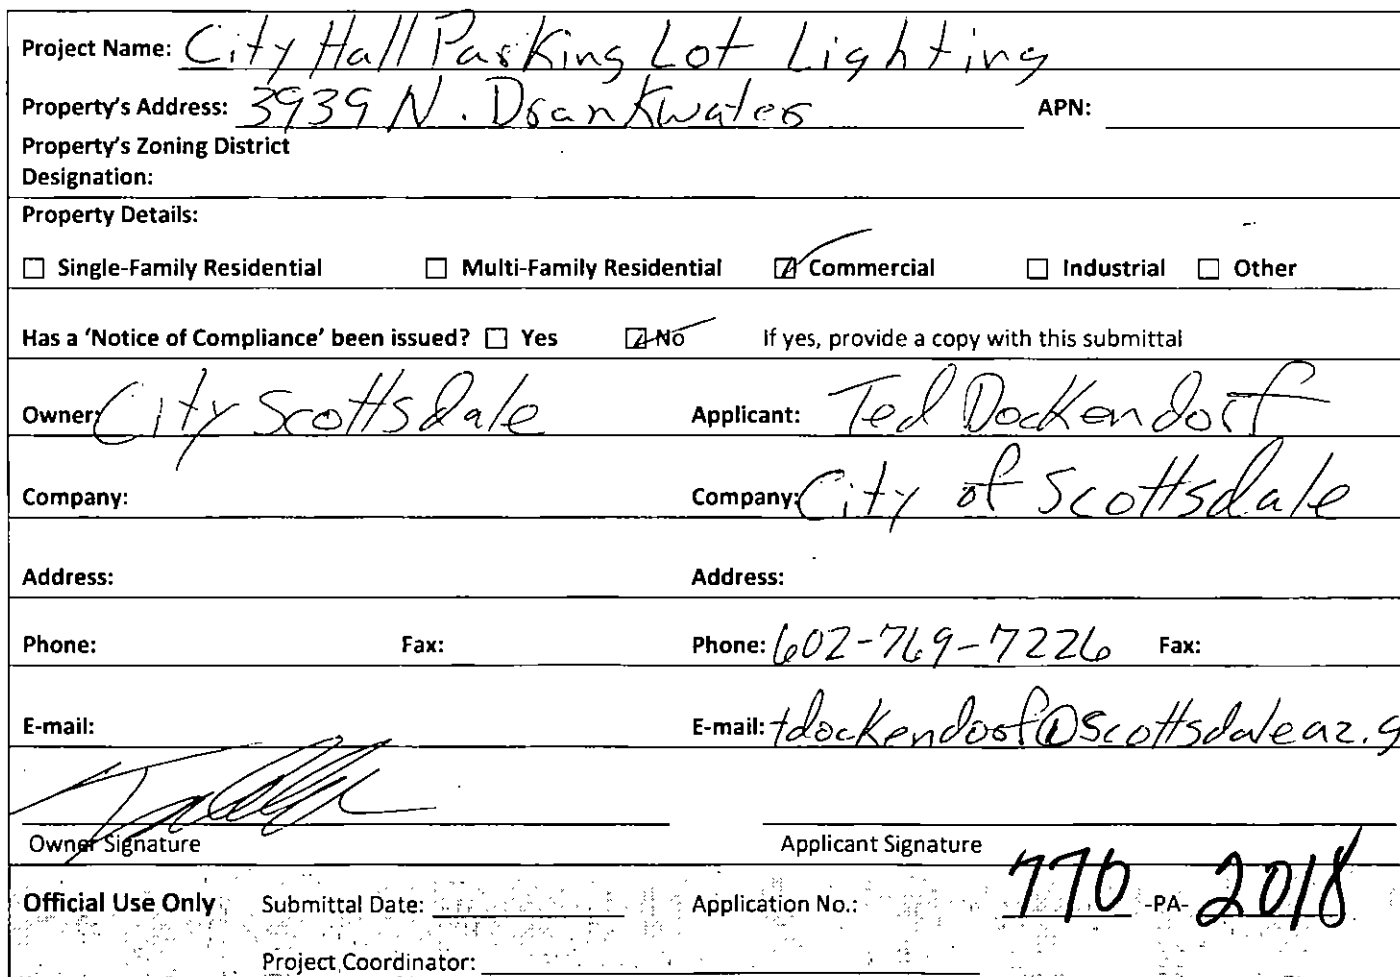 Project Name: City Hall Parking Lot Lighting
Property's Address: 3939 N. Drankwater APN:
Property's Zoning District
Designation:
Property Details:
☐ Single-Family Residential ☐ Multi-Family Residential ☑ Commercial ☐ Industrial ☐ Other
Has a 'Notice of Compliance' been issued? ☐ Yes ☑ No If yes, provide a copy with this submittal
Owner: City Scottsdale Applicant: Ted Dockendorf
Company: Company: City of Scottsdale
Address: Address:
Phone: Fax: Phone: 602-769-7226 Fax:
E-mail: E-mail: tdockendorf@scottsdaleaz.g
Owner Signature Applicant Signature
Official Use Only Submittal Date: Application No.: 770 -PA- 2018
Project Coordinator: